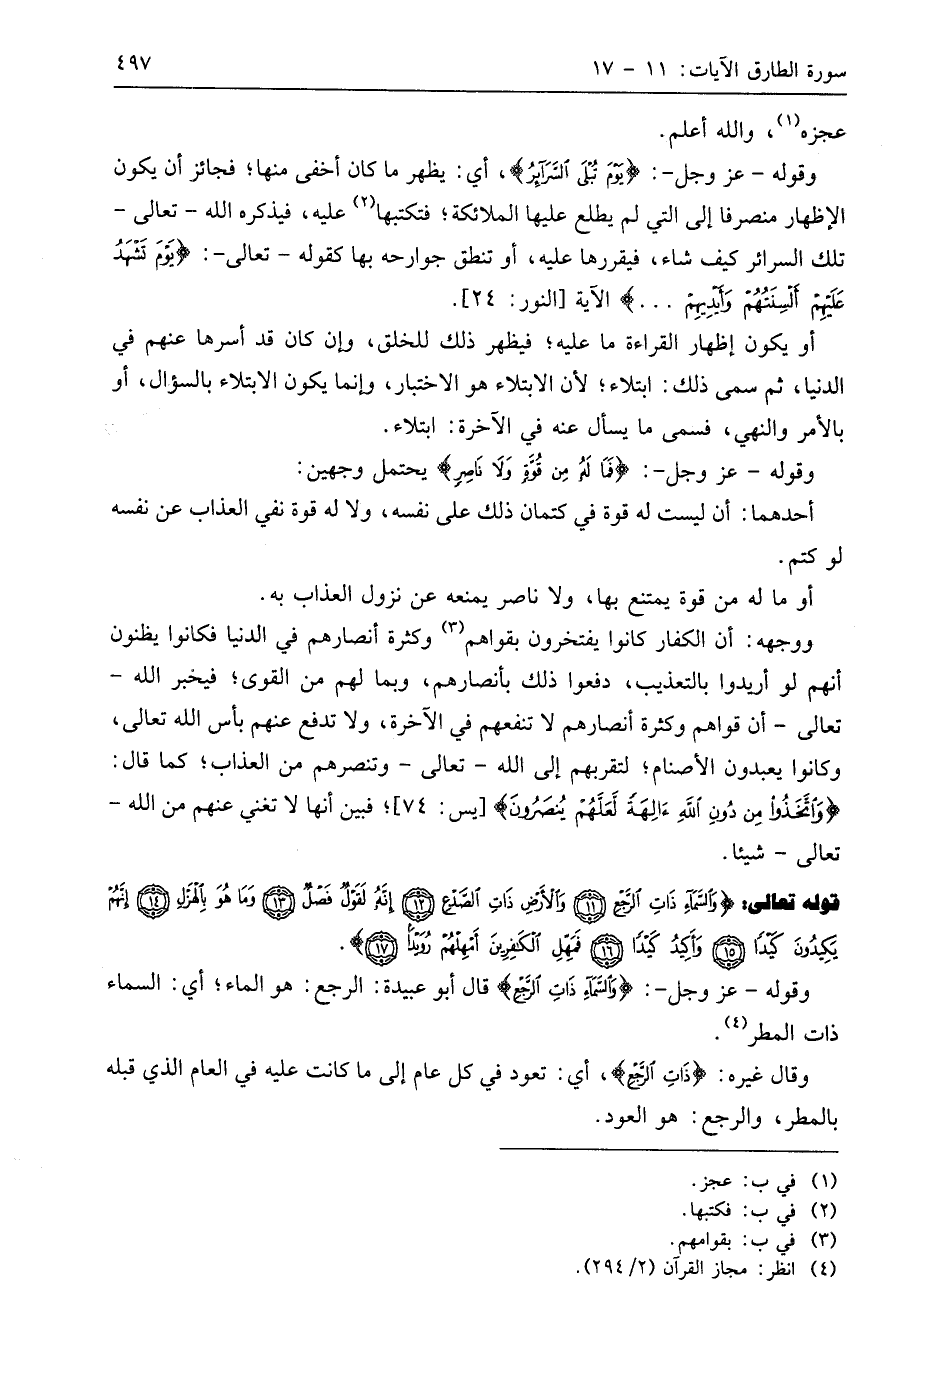 سورة الطارق الآيات: ١١ - ١٧
٤٩٧
عجزه(١)، والله أعلم.
وقوله - عز وجل-: ﴿يَوْمَ تُبْلَى ٱلسَّرَآئِرُ﴾، أي: يظهر ما كان أخفى منها؛ فجائز أن يكون
الإظهار منصرفا إلى التي لم يطلع عليها الملائكة؛ فتكتبها(٢) عليه، فيذكره الله - تعالى -
تلك السرائر كيف شاء، فيقررها عليه، أو تنطق جوارحه بها كقوله - تعالى-: ﴿يَوْمَ تَشْهَدُ
عَلَيْهِمْ أَلْسِنَتُهُمْ وَأَيْدِيهِمْ ...﴾ الآية [النور: ٢٤].
أو يكون إظهار القراءة ما عليه؛ فيظهر ذلك للخلق، وإن كان قد أسرها عنهم في
الدنيا، ثم سمى ذلك: ابتلاء؛ لأن الابتلاء هو الاختبار، وإنما يكون الابتلاء بالسؤال، أو
بالأمر والنهي، فسمى ما يسأل عنه في الآخرة: ابتلاء.
وقوله - عز وجل-: ﴿فَمَا لَهُۥ مِن قُوَّةٍ وَلَا نَاصِرٍ﴾ يحتمل وجهين:
أحدهما: أن ليست له قوة في كتمان ذلك على نفسه، ولا له قوة نفي العذاب عن نفسه
لو كتم.
أو ما له من قوة يمتنع بها، ولا ناصر يمنعه عن نزول العذاب به.
ووجهه: أن الكفار كانوا يفتخرون بقواهم(٣) وكثرة أنصارهم في الدنيا فكانوا يظنون
أنهم لو أريدوا بالتعذيب، دفعوا ذلك بأنصارهم، وبما لهم من القوى؛ فيخبر الله -
تعالى - أن قواهم وكثرة أنصارهم لا تنفعهم في الآخرة، ولا تدفع عنهم بأس الله تعالى،
وكانوا يعبدون الأصنام؛ لتقربهم إلى الله - تعالى - وتنصرهم من العذاب؛ كما قال:
﴿وَٱتَّخَذُوا۟ مِن دُونِ ٱللَّهِ ءَالِهَةً لَّعَلَّهُمْ يُنصَرُونَ﴾ [يس: ٧٤]؛ فبين أنها لا تغني عنهم من الله -
تعالى - شيئا.
قوله تعالى: ﴿وَٱلسَّمَآءِ ذَاتِ ٱلرَّجْعِ ⑪ وَٱلْأَرْضِ ذَاتِ ٱلصَّدْعِ ⑫ إِنَّهُۥ لَقَوْلٌ فَصْلٌ ⑬ وَمَا هُوَ بِٱلْهَزْلِ ⑭ إِنَّهُمْ
يَكِيدُونَ كَيْدًا ⑮ وَأَكِيدُ كَيْدًا ⑯ فَمَهِّلِ ٱلْكَٰفِرِينَ أَمْهِلْهُمْ رُوَيْدًۢا ⑰﴾.
وقوله - عز وجل-: ﴿وَٱلسَّمَآءِ ذَاتِ ٱلرَّجْعِ﴾ قال أبو عبيدة: الرجع: هو الماء؛ أي: السماء
ذات المطر(٤).
وقال غيره: ﴿ذَاتِ ٱلرَّجْعِ﴾، أي: تعود في كل عام إلى ما كانت عليه في العام الذي قبله
بالمطر، والرجع: هو العود.
(١) في ب: عجز.
(٢) في ب: فكتبها.
(٣) في ب: بقوامهم.
(٤) انظر: مجاز القرآن (٢/ ٢٩٤).